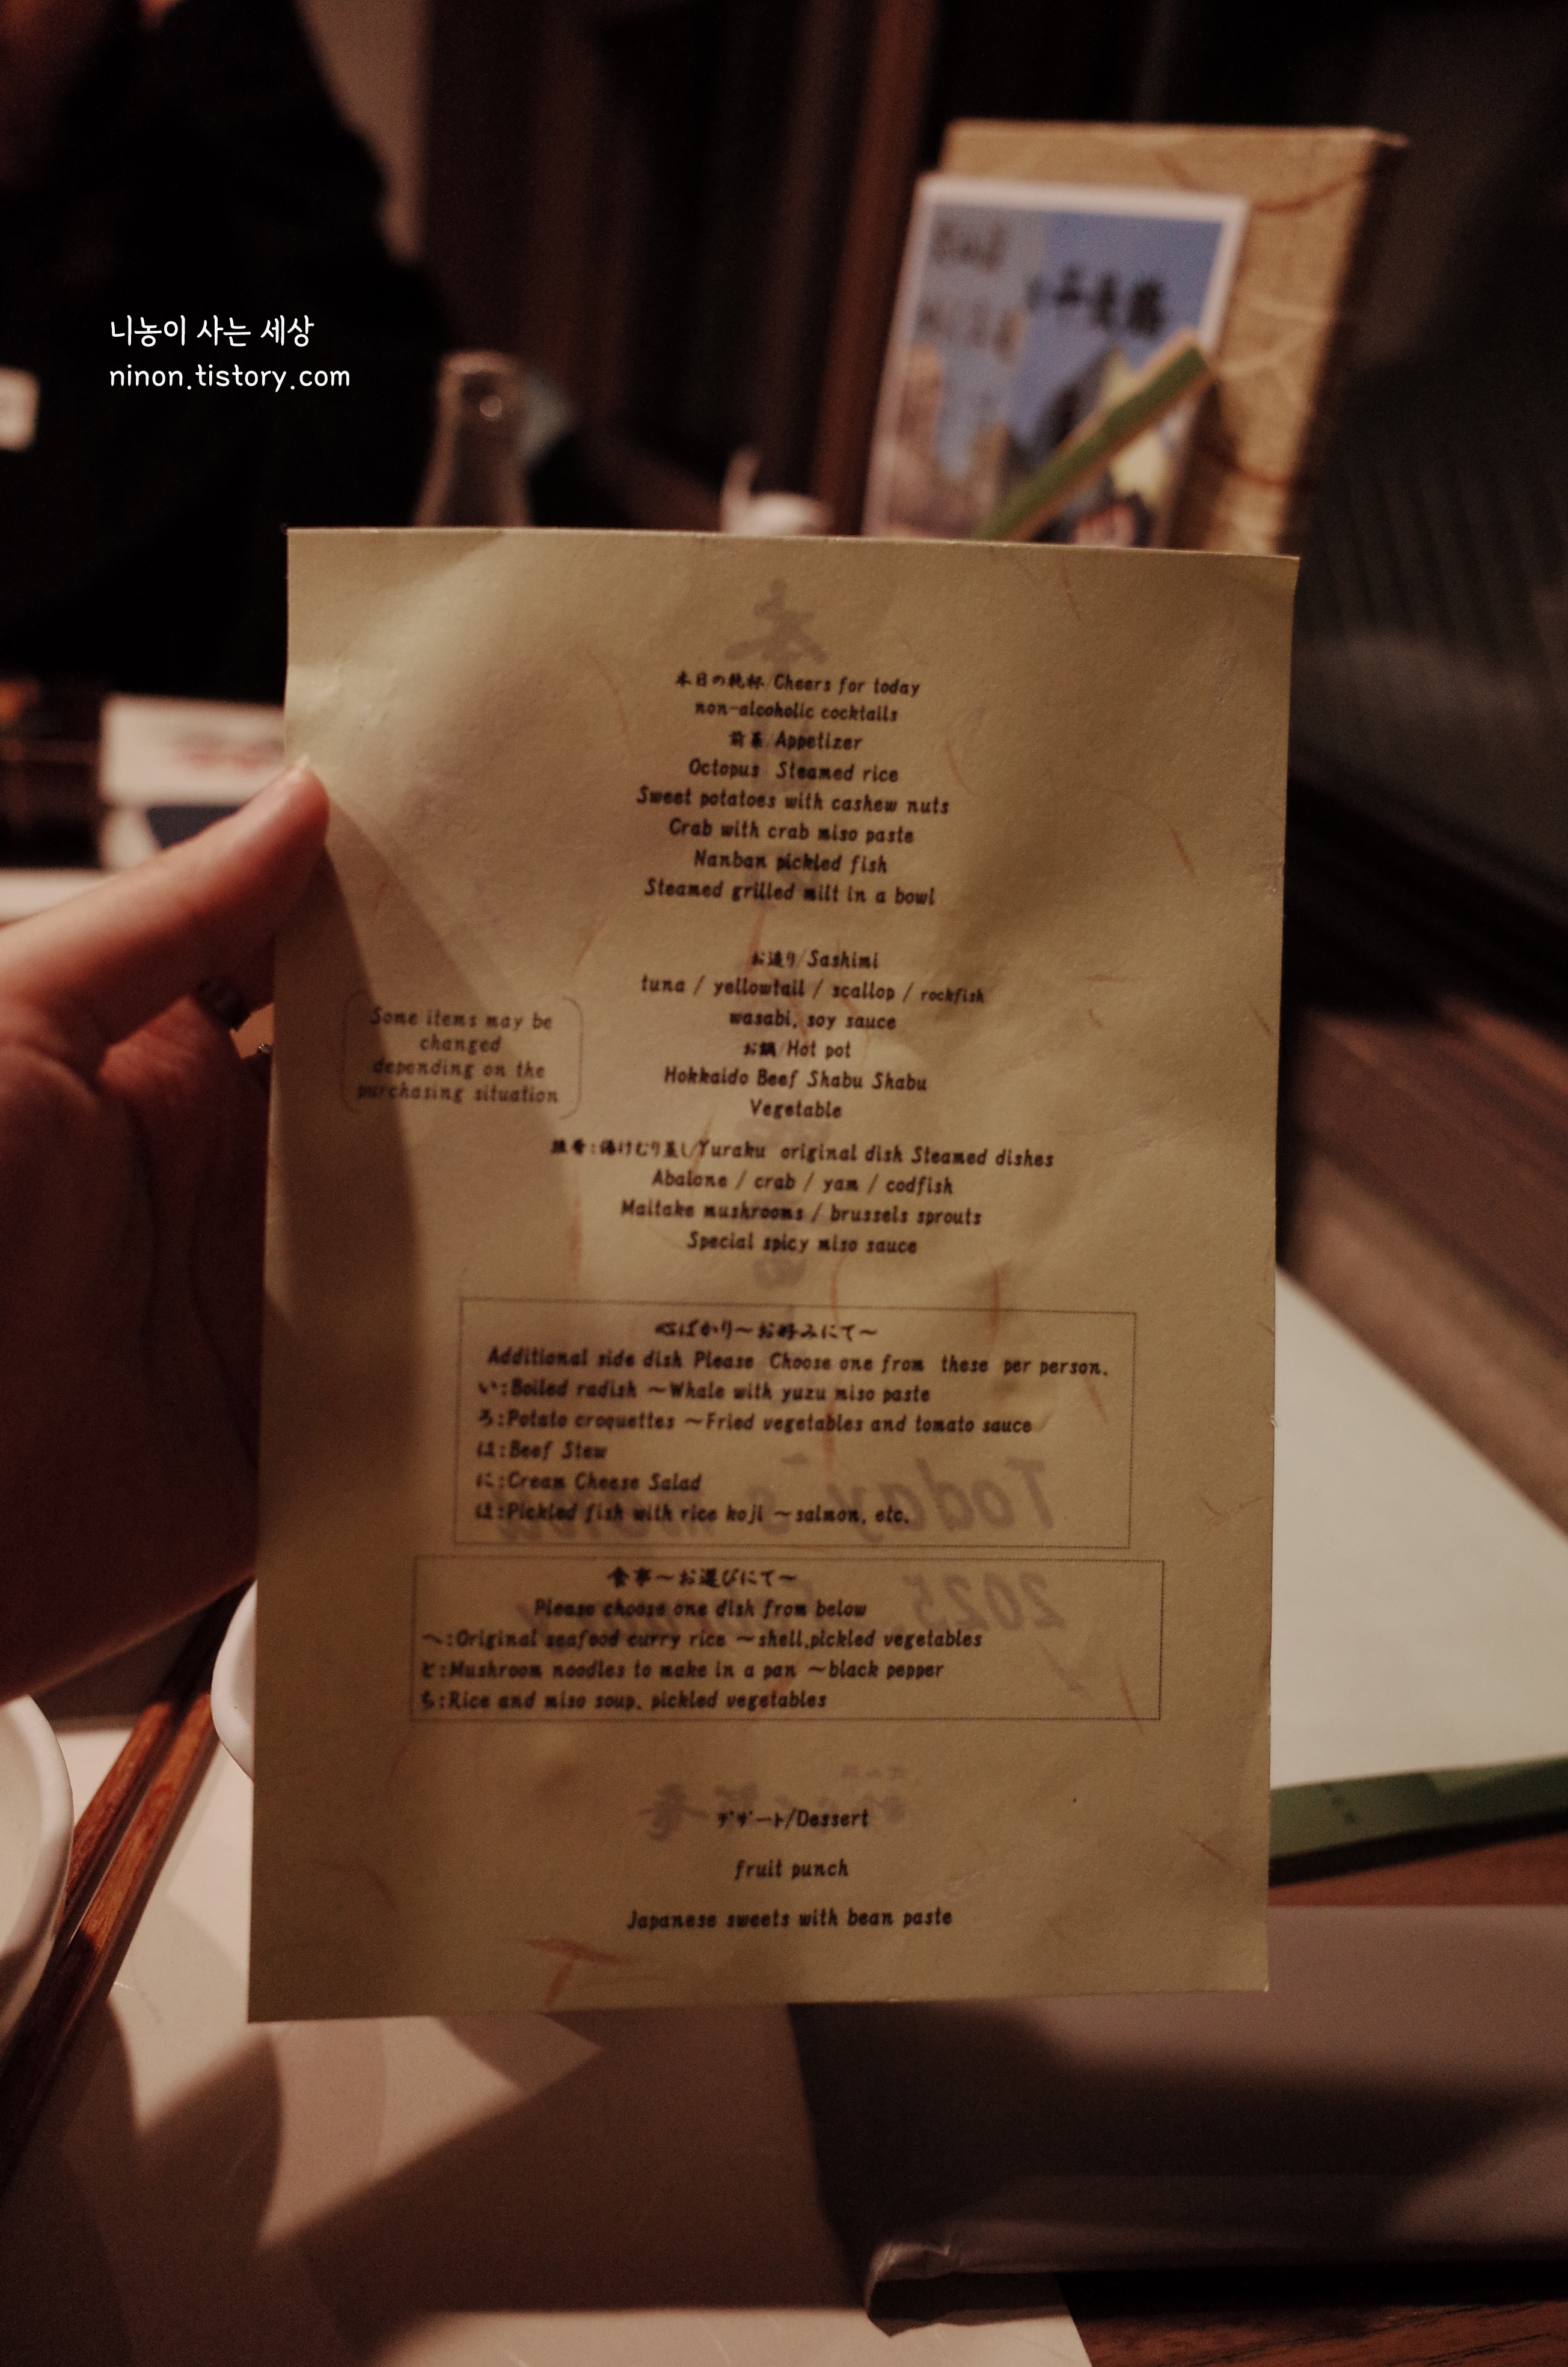 니농이 사는 세상
ninon.tistory.com
本日の乾杯/Cheers for today
non-alcoholic cocktails
前菜/Appetizer
Octopus Steamed rice
Sweet potatoes with cashew nuts
Crab with crab miso paste
Nanban pickled fish
Steamed grilled milt in a bowl
お造り/Sashimi
tuna / yellowtail / scallop / rockfish
wasabi, soy sauce
お鍋/Hot pot
Hokkaido Beef Shabu Shabu
Vegetable
Some items may be
changed
depending on the
purchasing situation
湯けむり蒸し/Yuraku original dish Steamed dishes
Abalone / crab / yam / codfish
Maitake mushrooms / brussels sprouts
Special spicy miso sauce
心ばかり～お好みにて～
Additional side dish Please Choose one from these per person.
い:Boiled radish ～Whale with yuzu miso paste
ろ:Potato croquettes ～Fried vegetables and tomato sauce
は:Beef Stew
に:Cream Cheese Salad
ほ:Pickled fish with rice koji ～salmon, etc.
食事～お選びにて～
Please choose one dish from below
へ:Original seafood curry rice ～shell,pickled vegetables
と:Mushroom noodles to make in a pan ～black pepper
ち:Rice and miso soup, pickled vegetables
デザート/Dessert
fruit punch
Japanese sweets with bean paste